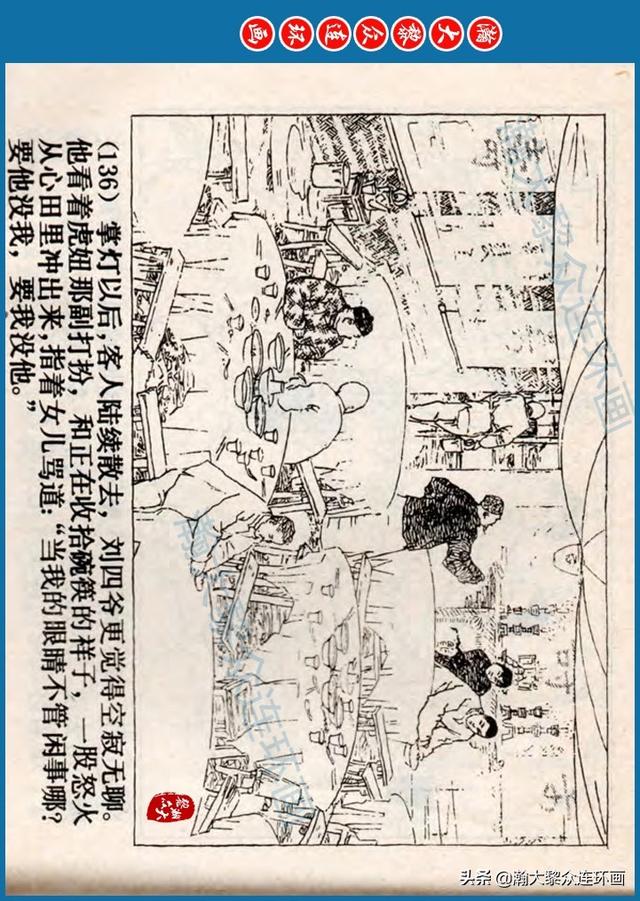 瀚大黎众连环画
(136) 掌灯以后,客人陆续散去,刘四爷更觉得空寂无聊。
他看着虎妞那副打扮,和正在收拾碗筷的祥子,一股怒火
从心田里冲出来,指着女儿骂道:“当我的眼睛不管闲事哪?
要他没我,要我没他。”
瀚大黎众连环画
瀚大黎众连环画
头条 @瀚大黎众连环画